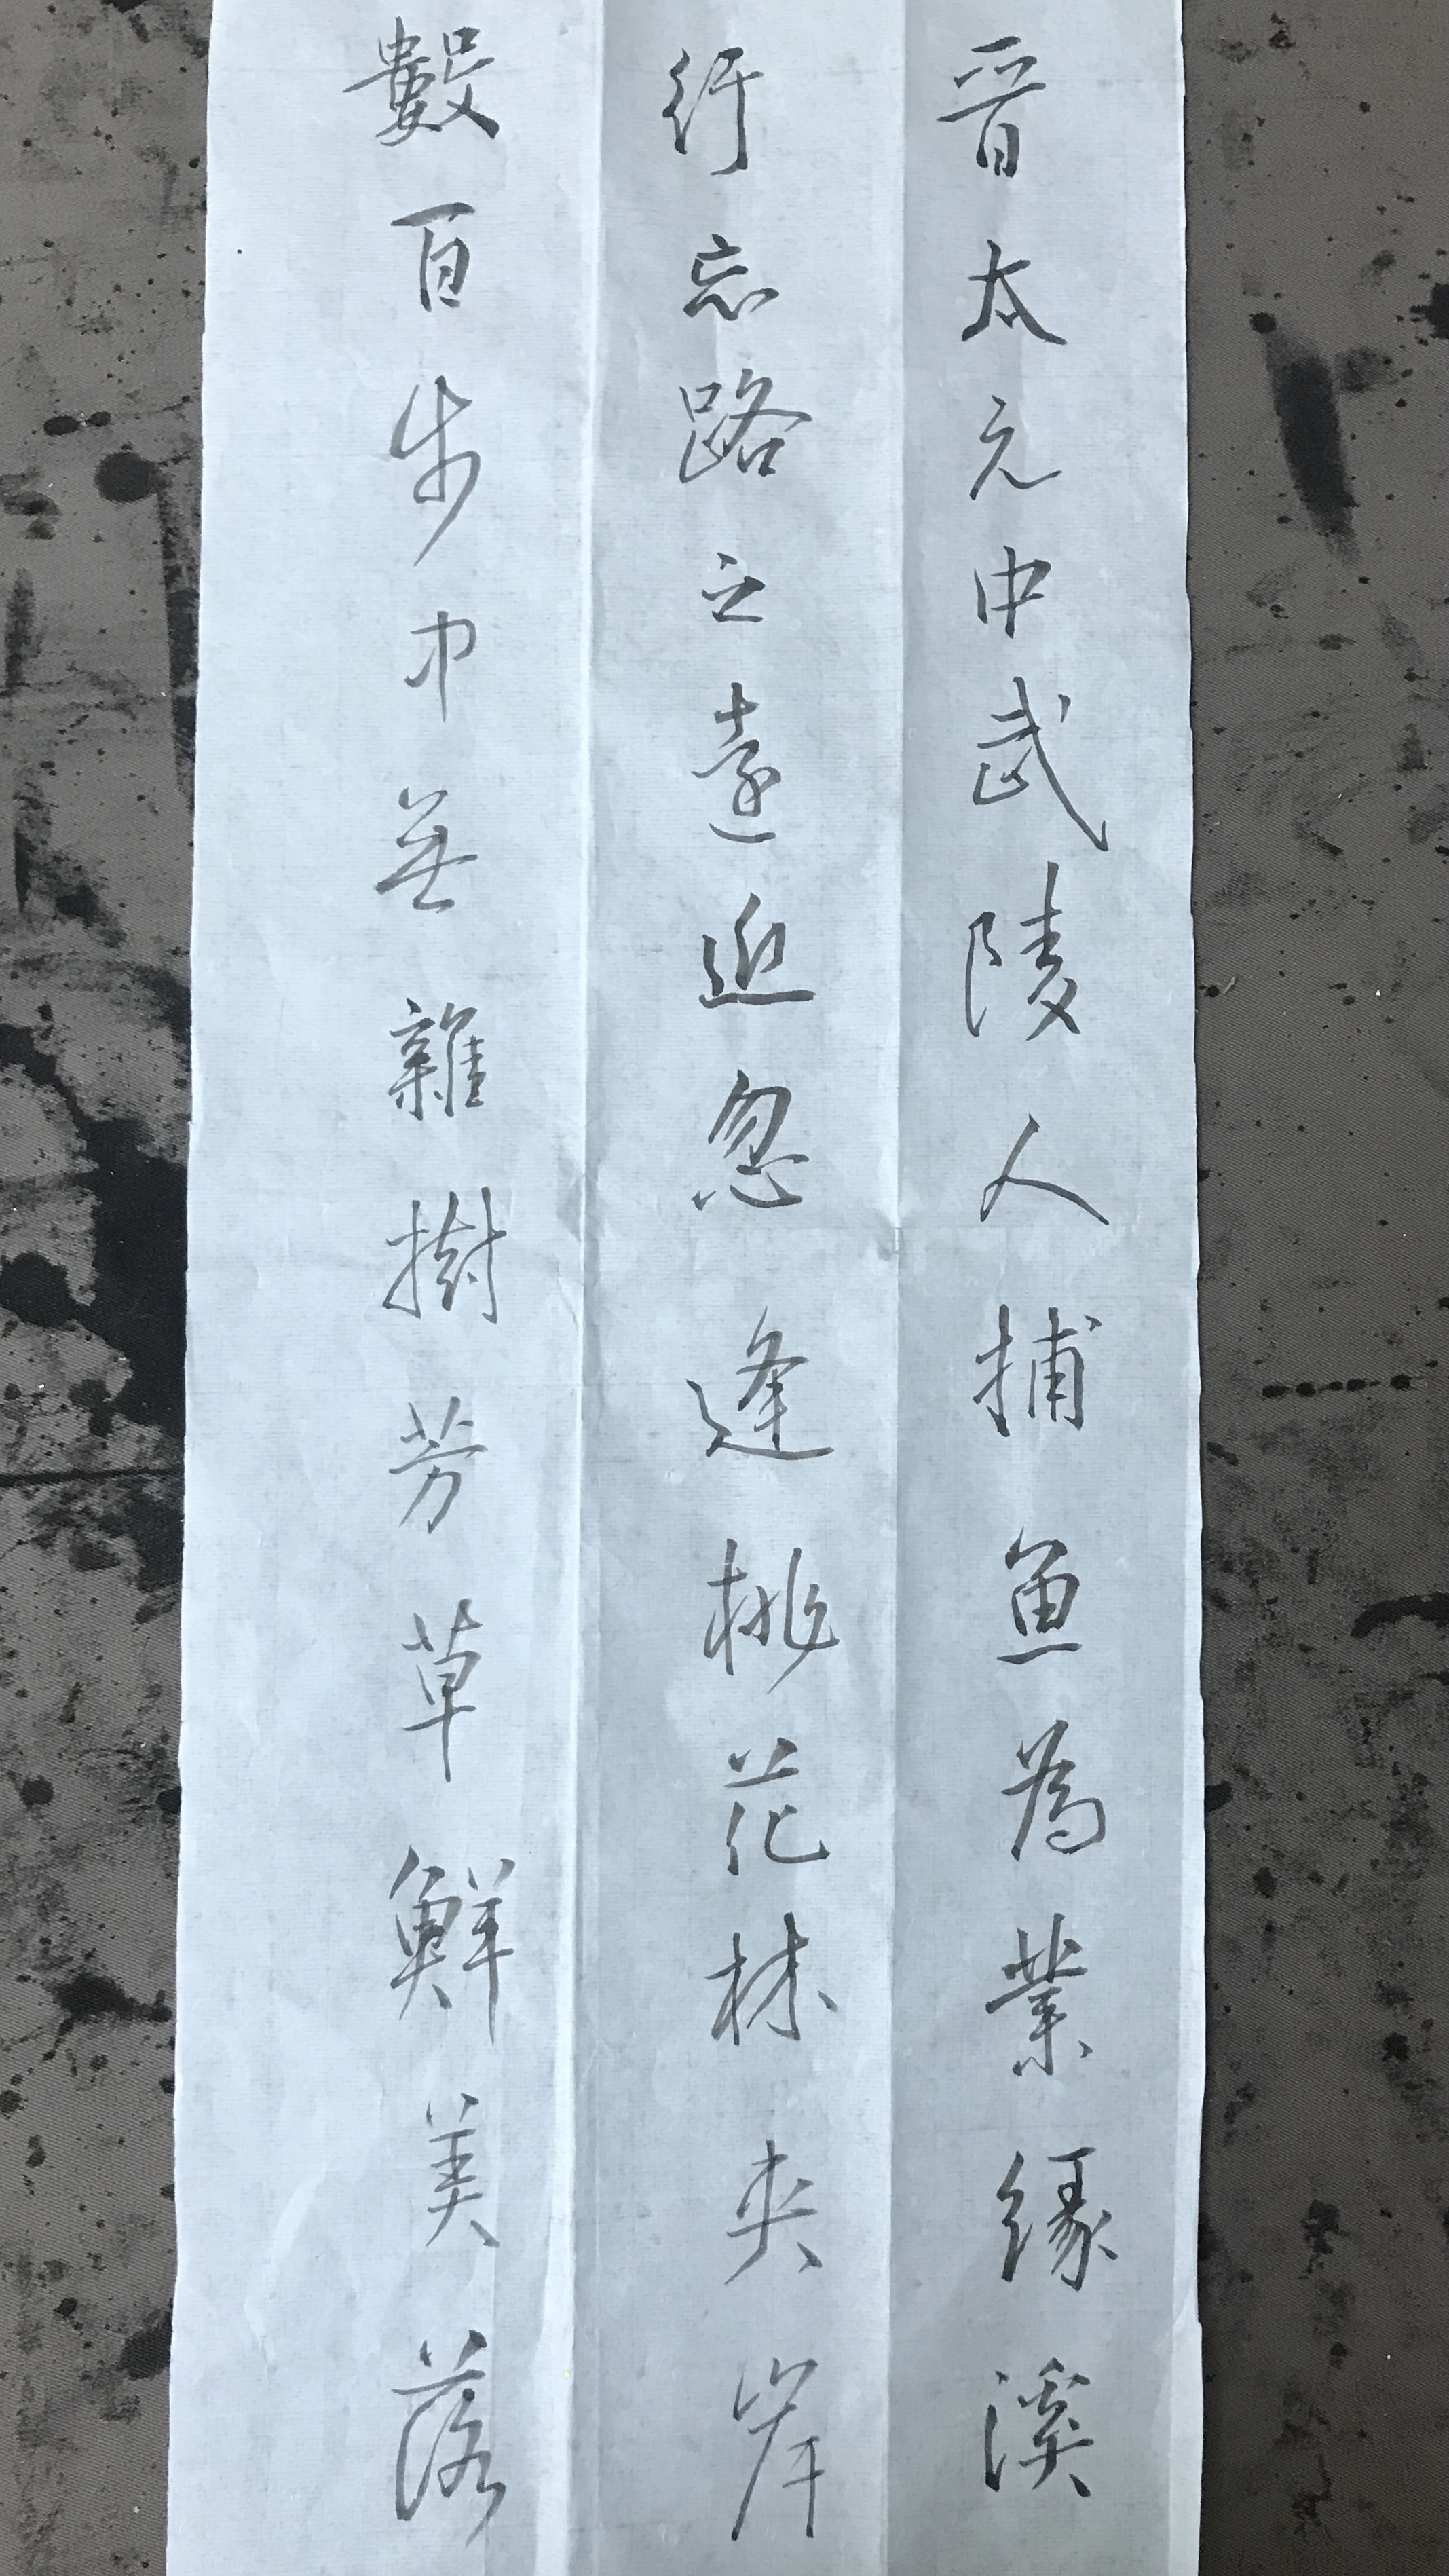 晋太元中武陵人捕魚為業緣溪
行忘路之遠近忽逢桃花林夾岸
數百步中無雜樹芳草鮮美落